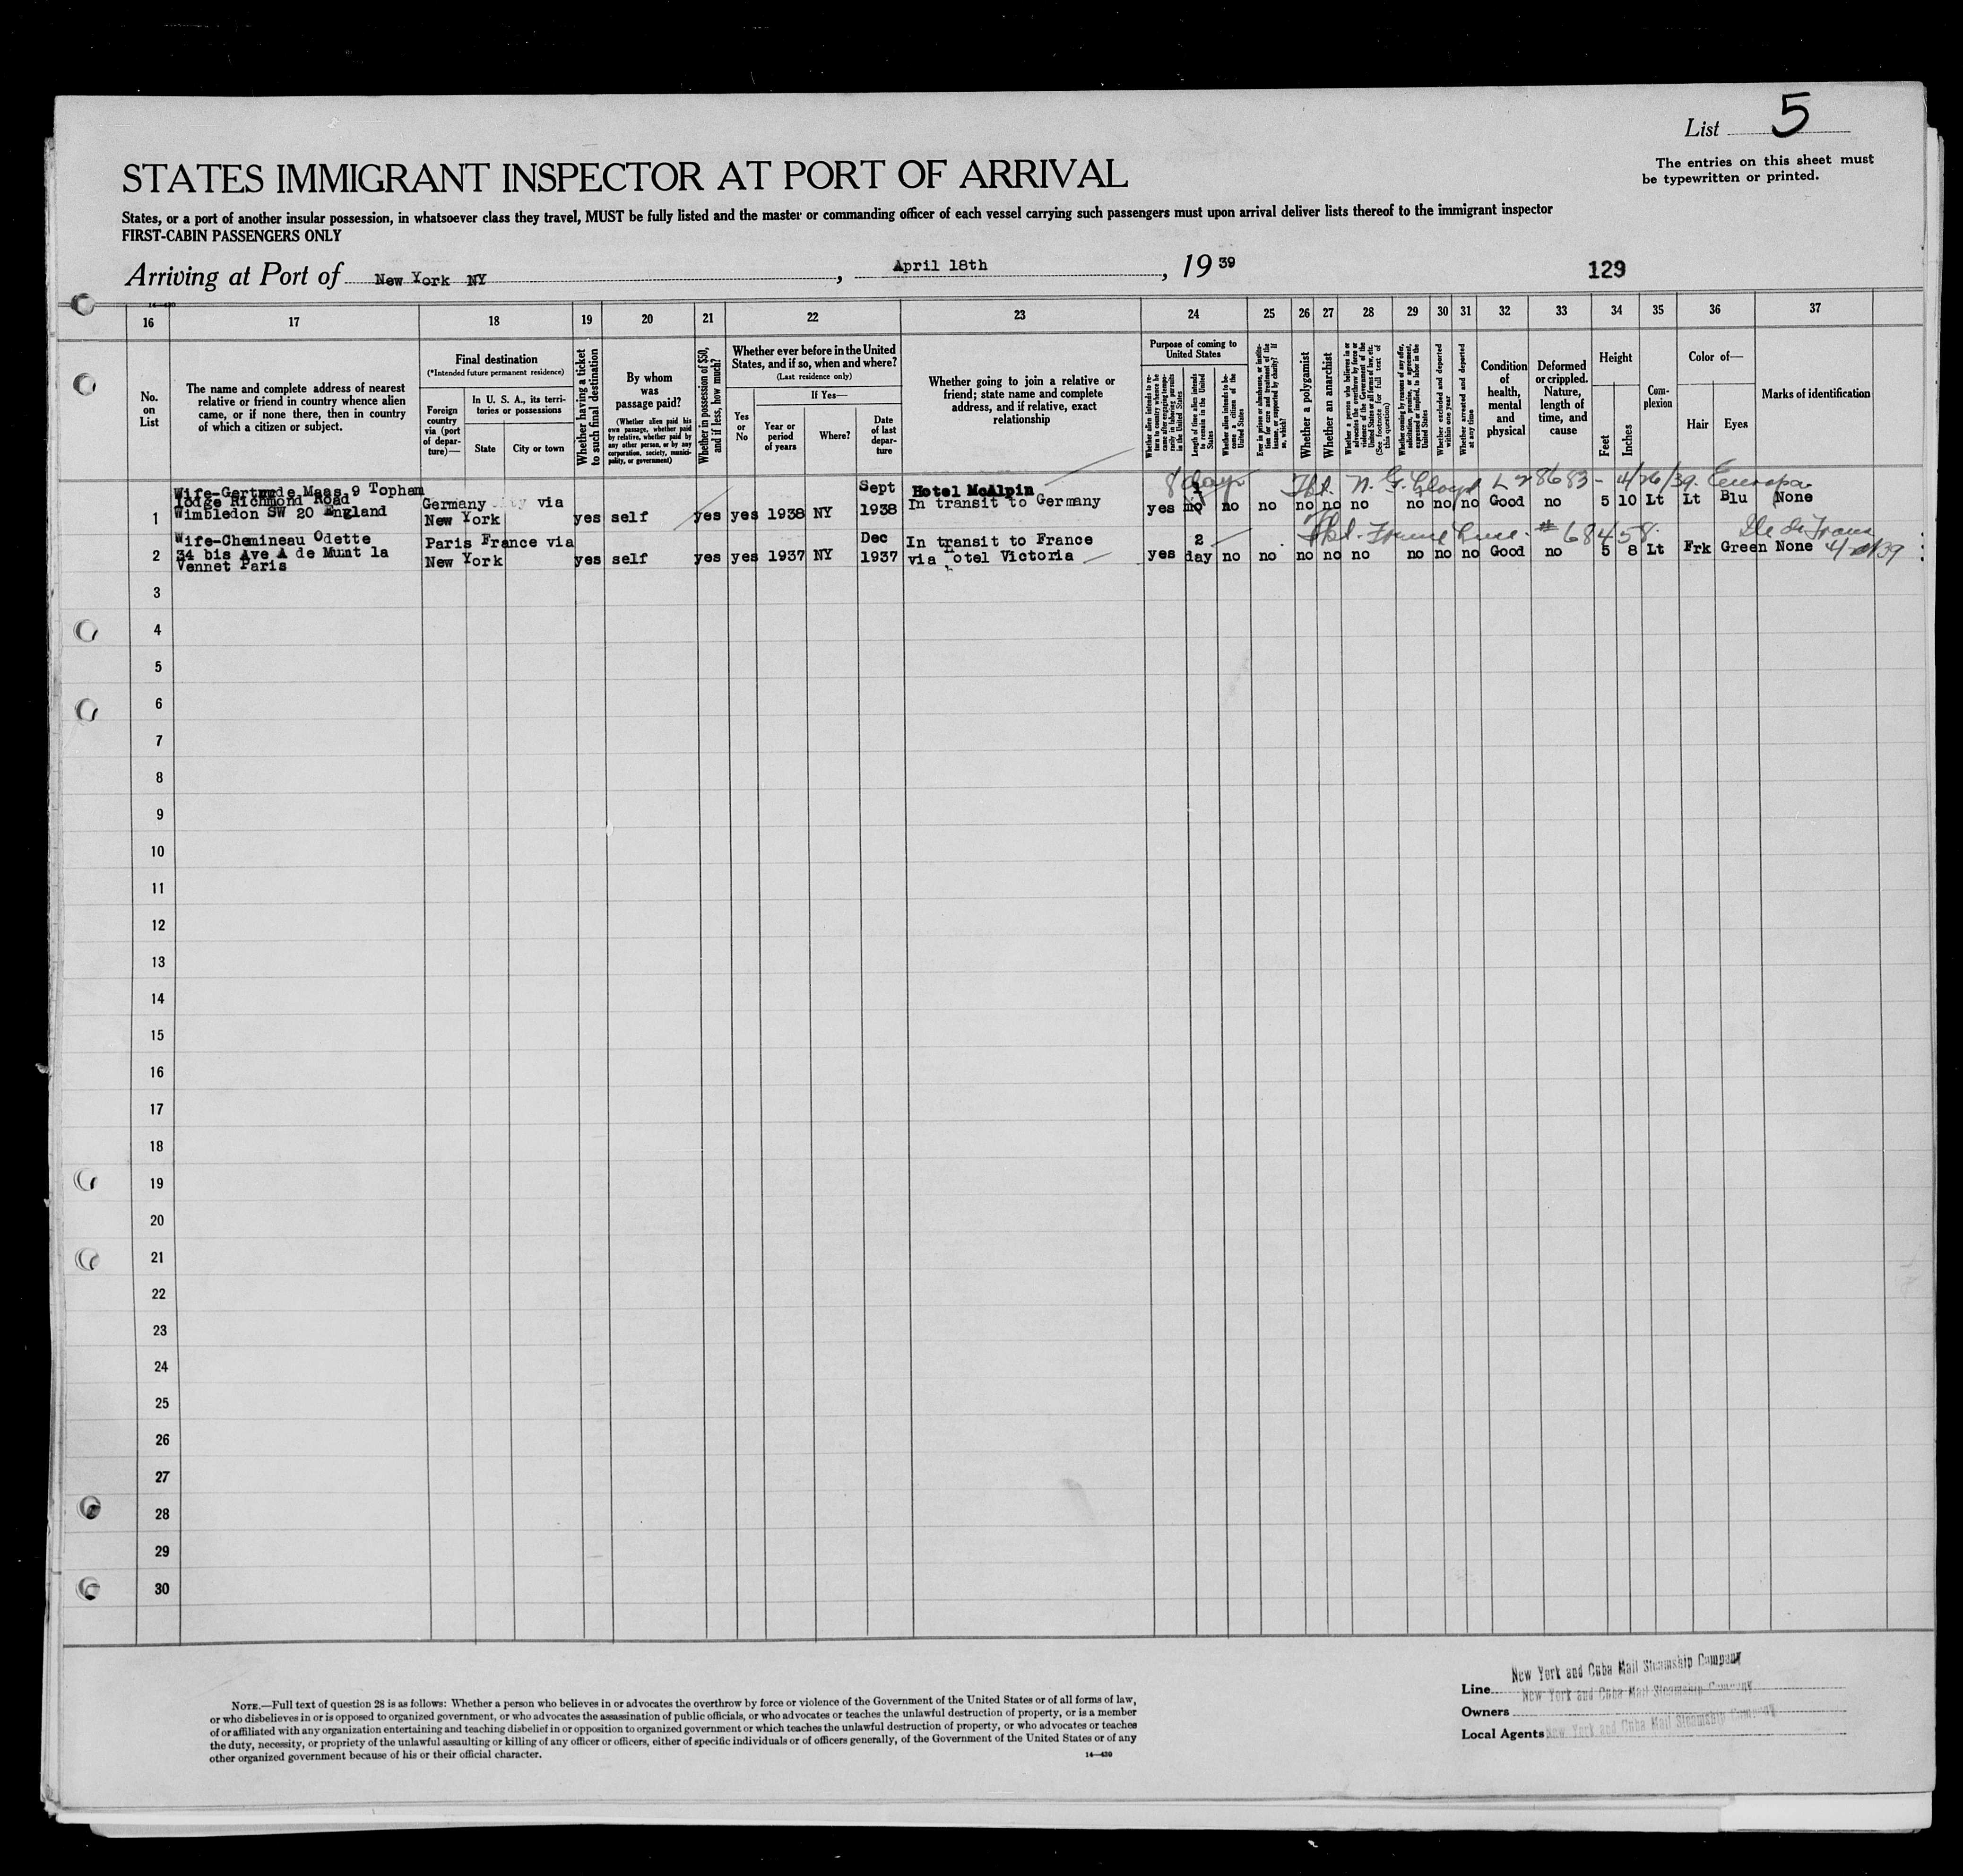 List 5
The entries on this sheet must
be typewritten or printed.
STATES IMMIGRANT INSPECTOR AT PORT OF ARRIVAL
States, or a port of another insular possession, in whatsoever class they travel, MUST be fully listed and the master or commanding officer of each vessel carrying such passengers must upon arrival deliver lists thereof to the immigrant inspector
FIRST-CABIN PASSENGERS ONLY
Arriving at Port of New York NY, April 18th, 1939
129
14-430
16 17 18 19 20 21 22 23 24 25 26 27 28 29 30 31 32 33 34 35 36 37
No.
on
List
The name and complete address of nearest
relative or friend in country whence alien
came, or if none there, then in country
of which a citizen or subject.
Final destination
(*Intended future permanent residence)
Foreign
country
via (port
of depar-
ture)—
In U. S. A., its terri-
tories or possessions
State
City or town
Whether having a ticket
to such final destination
By whom
was
passage paid?
(Whether alien paid his
own passage, whether paid
by relative, whether paid by
any other person, or by any
corporation, society, munici-
pality, or government)
Whether in possession of $50,
and if less, how much?
Whether ever before in the United
States, and if so, when and where?
(Last residence only)
Yes
or
No
If Yes—
Year or
period
of years
Where?
Date
of last
depar-
ture
Whether going to join a relative or
friend; state name and complete
address, and if relative, exact
relationship
Purpose of coming to
United States
Whether alien intends to re-
turn to country whence he
came after engaging tempo-
rarily in laboring pursuits
in the United States
Length of time alien intends
to remain in the United
States
Whether alien intends to be-
come a citizen of the
United States
Ever in prison or almshouse, or institu-
tion for care and treatment of the
insane, or supported by charity? If
so, which?
Whether a polygamist
Whether an anarchist
Whether a person who believes in or
advocates the overthrow by force or
violence of the Government of the
United States or all forms of law, etc.
(See footnote for full text of
this question)
Whether coming by reasons of any offer,
solicitation, promise, or agreement,
expressed or implied, to labor in the
United States
Whether excluded and deported
within one year
Whether arrested and deported
at any time
Condition
of
health,
mental
and
physical
Deformed
or crippled.
Nature,
length of
time, and
cause
Height
Feet
Inches
Com-
plexion
Color of—
Hair
Eyes
Marks of identification
1
Wife-Gertrude Maas 9 Topham
lodge Richmond Road
Wimbledon SW 20 England
Germany via
New York
yes self yes yes 1938 NY
Sept
1938
Hotel McAlpin
In transit to Germany
8 days
yes no no no no no no no no Good no 5 10 Lt Lt Blu None
N. G. Lloyd L 28683 - 4/26/39. Europa
2
Wife-Chemineau Odette
34 bis Ave A de Mumt la
Vennet Paris
Paris France via
New York
yes self yes yes 1937 NY
Dec
1937
In transit to France
via Hotel Victoria
yes
2
day
no no no no no no no no Good no 5 8 Lt Frk Green None
Line. #68458. Ile de France
3
4
5
6
7
8
9
10
11
12
13
14
15
16
17
18
19
20
21
22
23
24
25
26
27
28
29
30
NOTE.—Full text of question 28 is as follows: Whether a person who believes in or advocates the overthrow by force or violence of the Government of the United States or of all forms of law,
or who disbelieves in or is opposed to organized government, or who advocates the assassination of public officials, or who advocates or teaches the unlawful destruction of property, or is a member
of or affiliated with any organization entertaining and teaching disbelief in or opposition to organized government or which teaches the unlawful destruction of property, or who advocates or teaches
the duty, necessity, or propriety of the unlawful assaulting or killing of any officer or officers, either of specific individuals or of officers generally, of the Government of the United States or of any
other organized government because of his or their official character.
14-430
Line New York and Cuba Mail Steamship Company
Owners New York and Cuba Mail Steamship Company
Local Agents New York and Cuba Mail Steamship Company